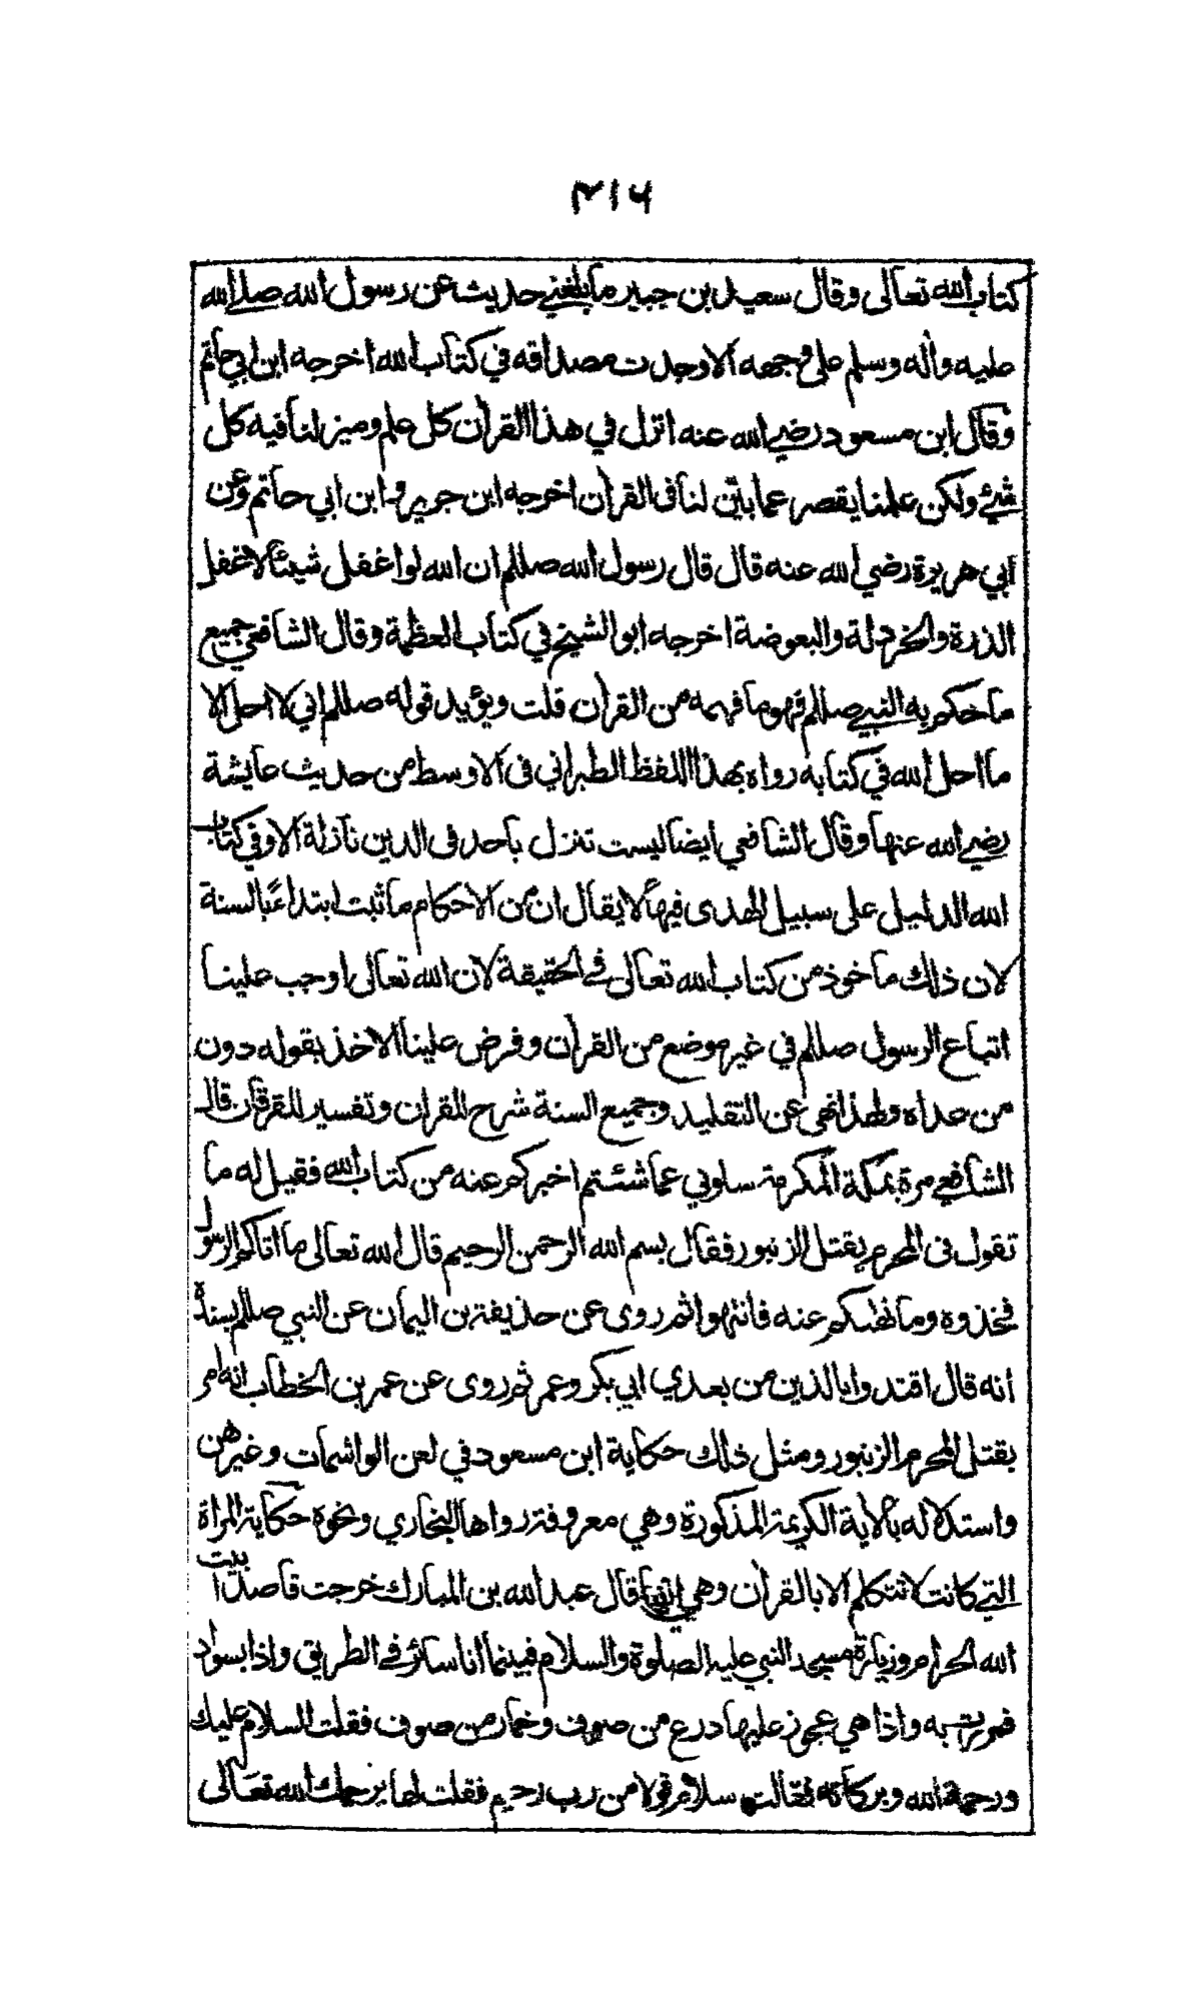 ٣١٦
كتاب الله تعالى وقال سعيد بن جبير ما بلغني حديث عن رسول الله صلى الله
عليه واله وسلم على وجهه الا وجدت مصداقه في كتاب الله اخرجه ابن ابي حاتم
وقال ابن مسعود رضي الله عنه انزل في هذا القرأن كل علم وميز لنا فيه كل
شئ ولكن علمنا يقصر عما بين لنا في القرأن اخرجه ابن جرير و ابن ابي حاتم وعن
ابي هريرة رضي الله عنه قال قال رسول الله صللم ان الله لو اغفل شيئا لاغفل
الذرة والخردلة والبعوضة اخرجه ابو الشيخ في كتاب العظمة وقال الشافعي جميع
ما حكم به النبي صللم فهو ما فهمه من القرأن قلت ويؤيد قوله صللم اني لا احل الا
ما احل الله في كتابه رواه بهذا اللفظ الطبراني في الاوسط من حديث عايشة
رضي الله عنها وقال الشافعي أيضا ليست تنزل باحد في الدين نازلة الا وفي كتاب
الله الدليل على سبيل الهدى فيها لا يقال ان من الاحكام ما ثبت ابتداءً بالسنة
لان ذلك ماخوذ من كتاب الله تعالى في الحقيقة لان الله تعالى اوجب علينا
اتباع الرسول صللم في غير موضع من القرأن وفرض علينا الاخذ بقوله دون
من عداه ولهذا نهى عن التقليد وجميع السنة شرح للقران وتفسير للفرقان قال
الشافعي مرة بمكة المكرمة سلوني عما شئتم اخبركم عنه من كتاب الله فقيل له ما
تقول في المحرم يقتل الزنبور فقال بسم الله الرحمن الرحيم قال الله تعالى ما اتاكم الرسول
فخذوه وما نهىكم عنه فانتهوا ثم روى عن حذيفة بن اليمان عن النبي صللم بسنده
أنه قال اقتدوا بالذين من بعدي ابي بكر وعمر ثم روى عن عمر بن الخطاب انه امر
بقتل المحرم الزنبور ومثل ذلك حكاية ابن مسعود في لعن الواشمات وغيرهن
واستدلاله بالاية الكريمة المذكورة وهي معروفة رواها البخاري ونحوه حكاية المرأة
التي كانت لا تتكلم الا بالقرأن وهي قال عبد الله بن المبارك خرجت قاصدا بيت
الله الحرام وزيارة مسجد النبي عليه الصلوة والسلام فبينما أنا سائر في الطريق واذا بسواد
فمررت به واذا هي عجوز عليها درع من صوف وخمار من صوف فقلت السلام عليك
ورحمة الله وبركاته فقالت سلام قولا من رب رحيم فقلت لها يرحمك الله تعالى